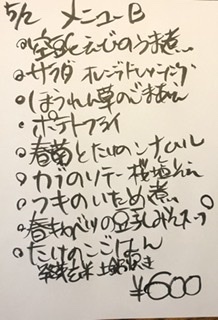 5/2 メニューB
空豆とえびのうま煮
サラダ オレンジドレッシング
ほうれん草のごまあえ
ポテトフライ
春菊とたけのこナムル
カブのソテー 桜
フキのいため煮
春キャベツの豆乳みそスープ
たけのこごはん
玄米 土鍋炊き
¥600